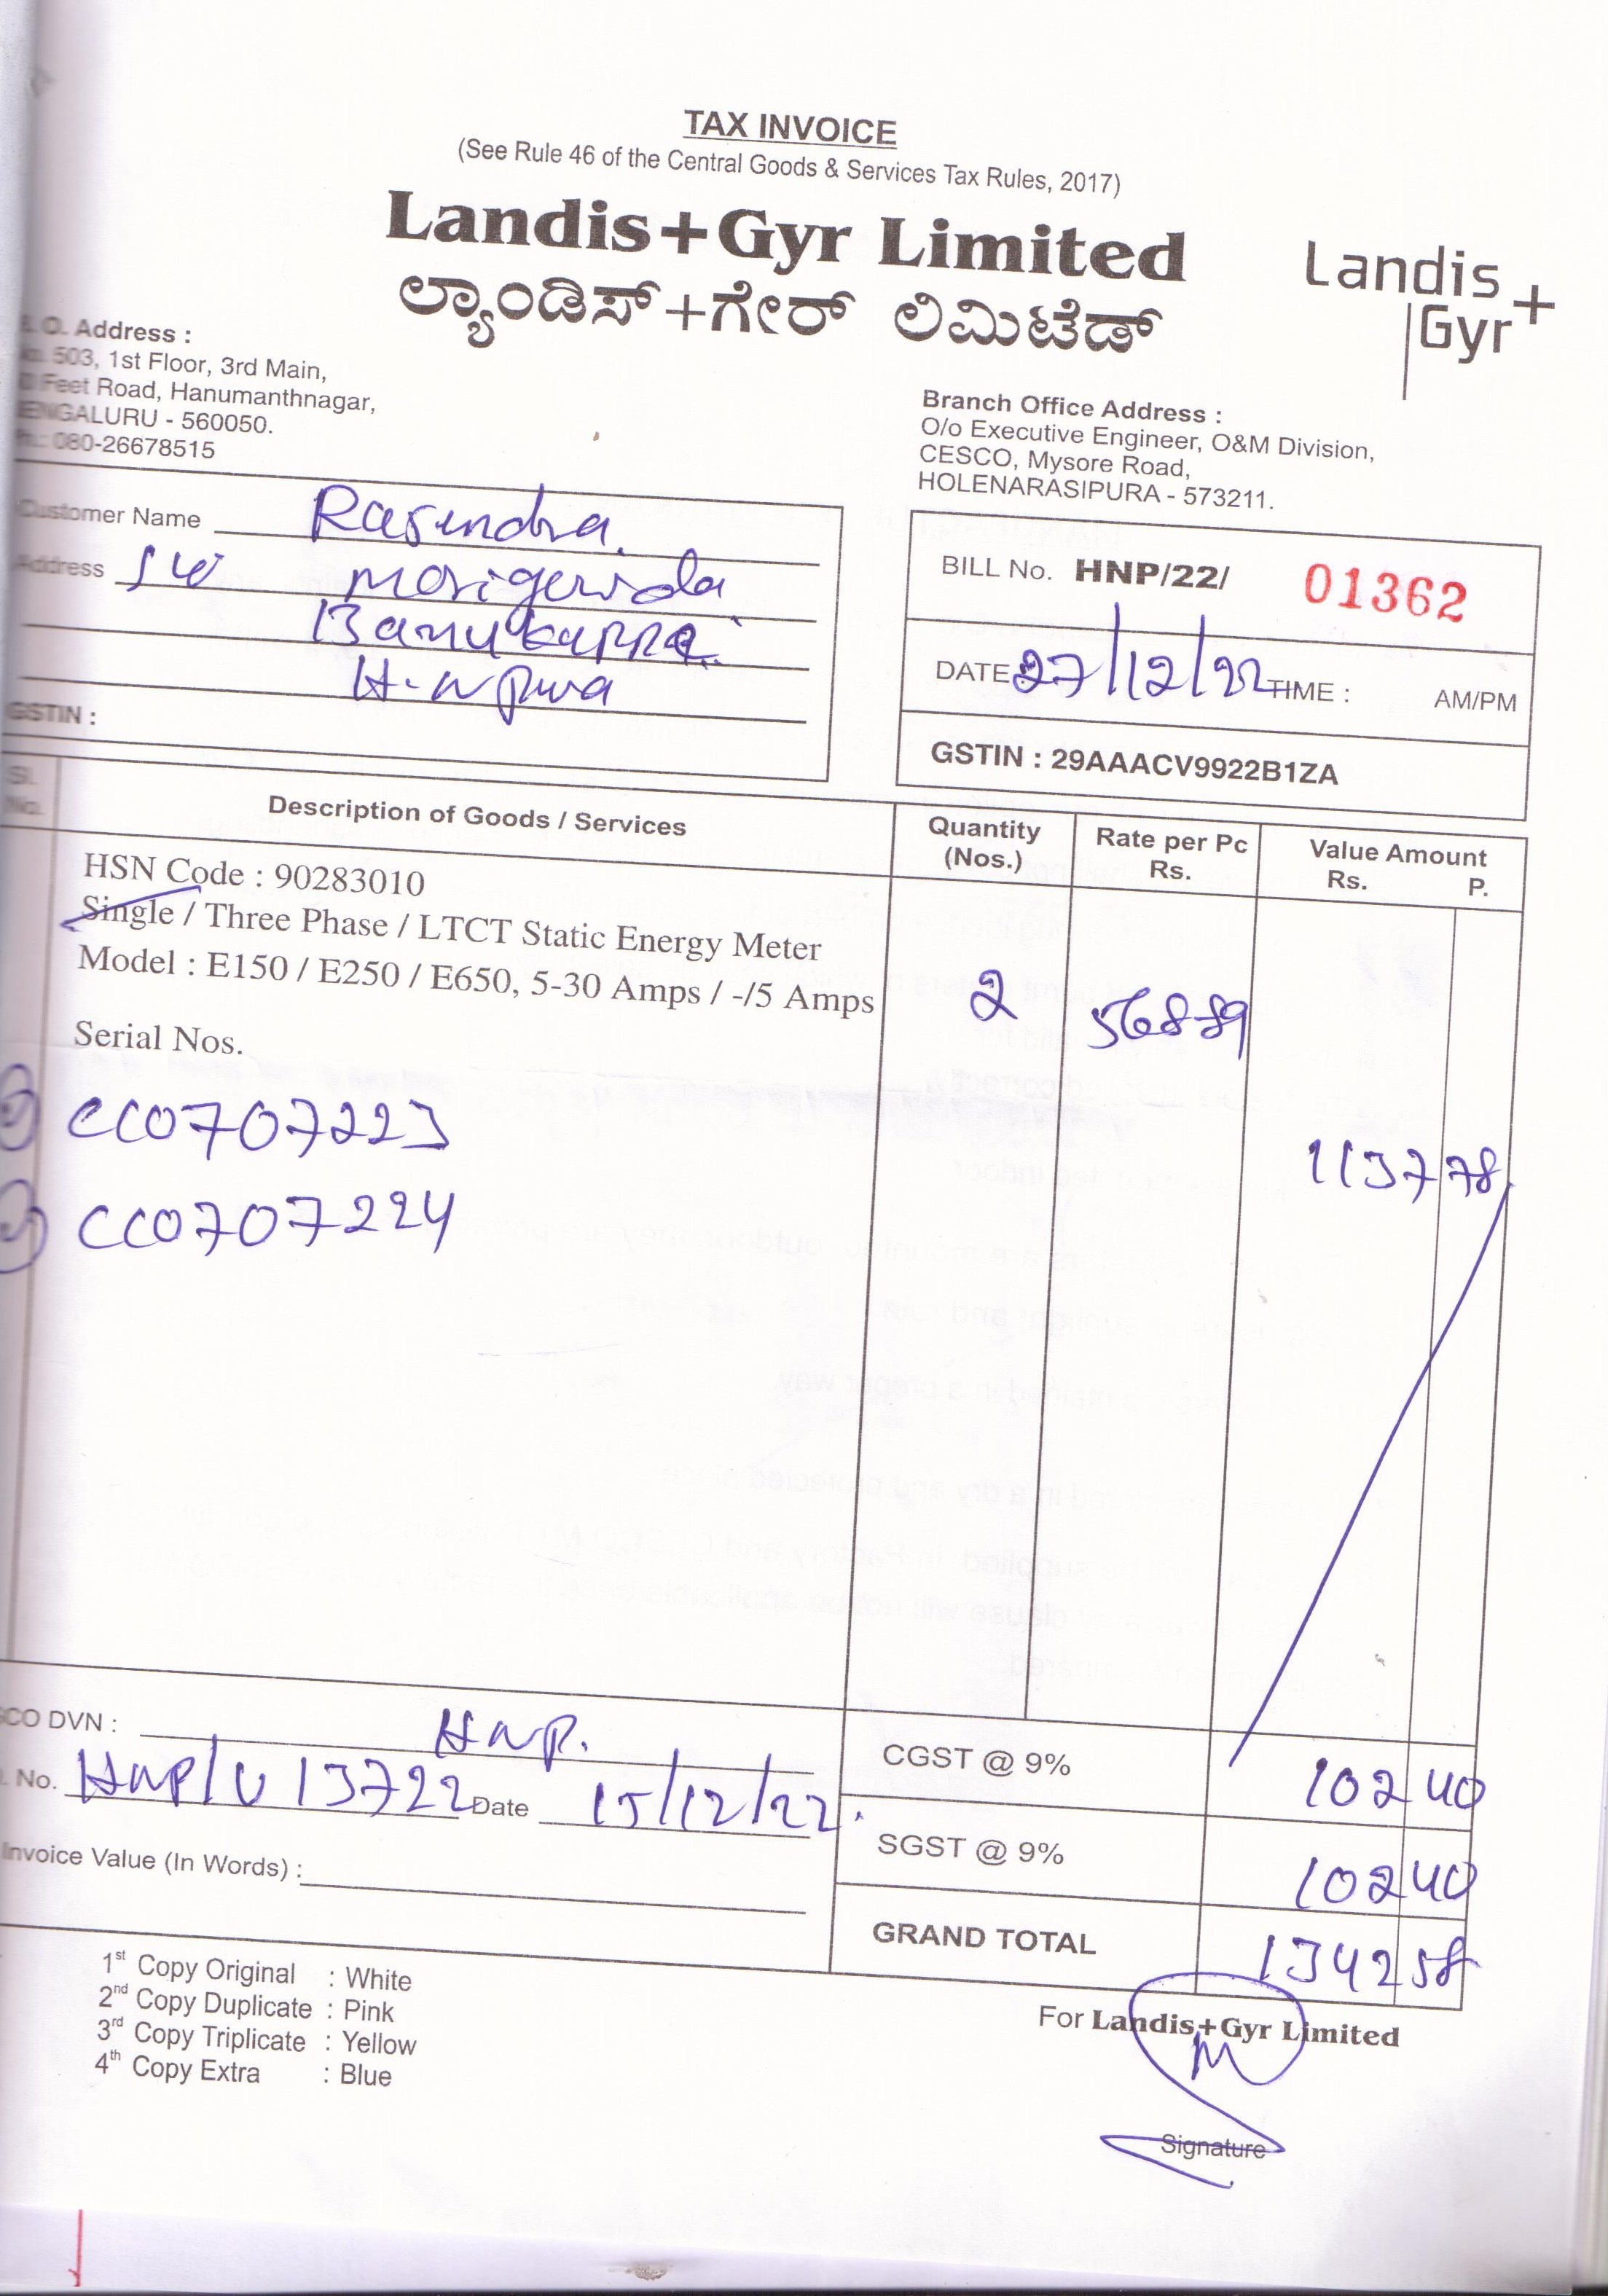 TAX INVOICE
(See Rule 46 of the Central Goods & Services Tax Rules, 2017)
Landis+Gyr Limited
ಲ್ಯಾಂಡಿಸ್+ಗೇರ್ ಲಿಮಿಟೆಡ್
Landis
Gyr+
O. Address :
503, 1st Floor, 3rd Main,
Feet Road, Hanumanthnagar,
BENGALURU - 560050.
Ph.: 080-26678515
Branch Office Address :
O/o Executive Engineer, O&M Division,
CESCO, Mysore Road,
HOLENARASIPURA - 573211.
Customer Name
Address
H.N Pura
GSTIN :
BILL No. HNP/22/ 01362
DATE : 27/12/22 TIME : AM/PM
GSTIN : 29AAACV9922B1ZA
Sl. No.
Description of Goods / Services
Quantity (Nos.)
Rate per Pc Rs.
Value Amount Rs. P.
HSN Code : 90283010
Single / Three Phase / LTCT Static Energy Meter
Model : E150 / E250 / E650, 5-30 Amps / -/5 Amps
2 568-89
Serial Nos.
CC0707223
1137 78
CC0707224
CO DVN : HNP.
No. HNP/U 13722 Date 15/12/22.
Invoice Value (In Words) :
CGST @ 9% 102 40
SGST @ 9% 102 40
GRAND TOTAL 1342 58
1st Copy Original : White
2nd Copy Duplicate : Pink
3rd Copy Triplicate : Yellow
4th Copy Extra : Blue
For Landis+Gyr Limited
Signature